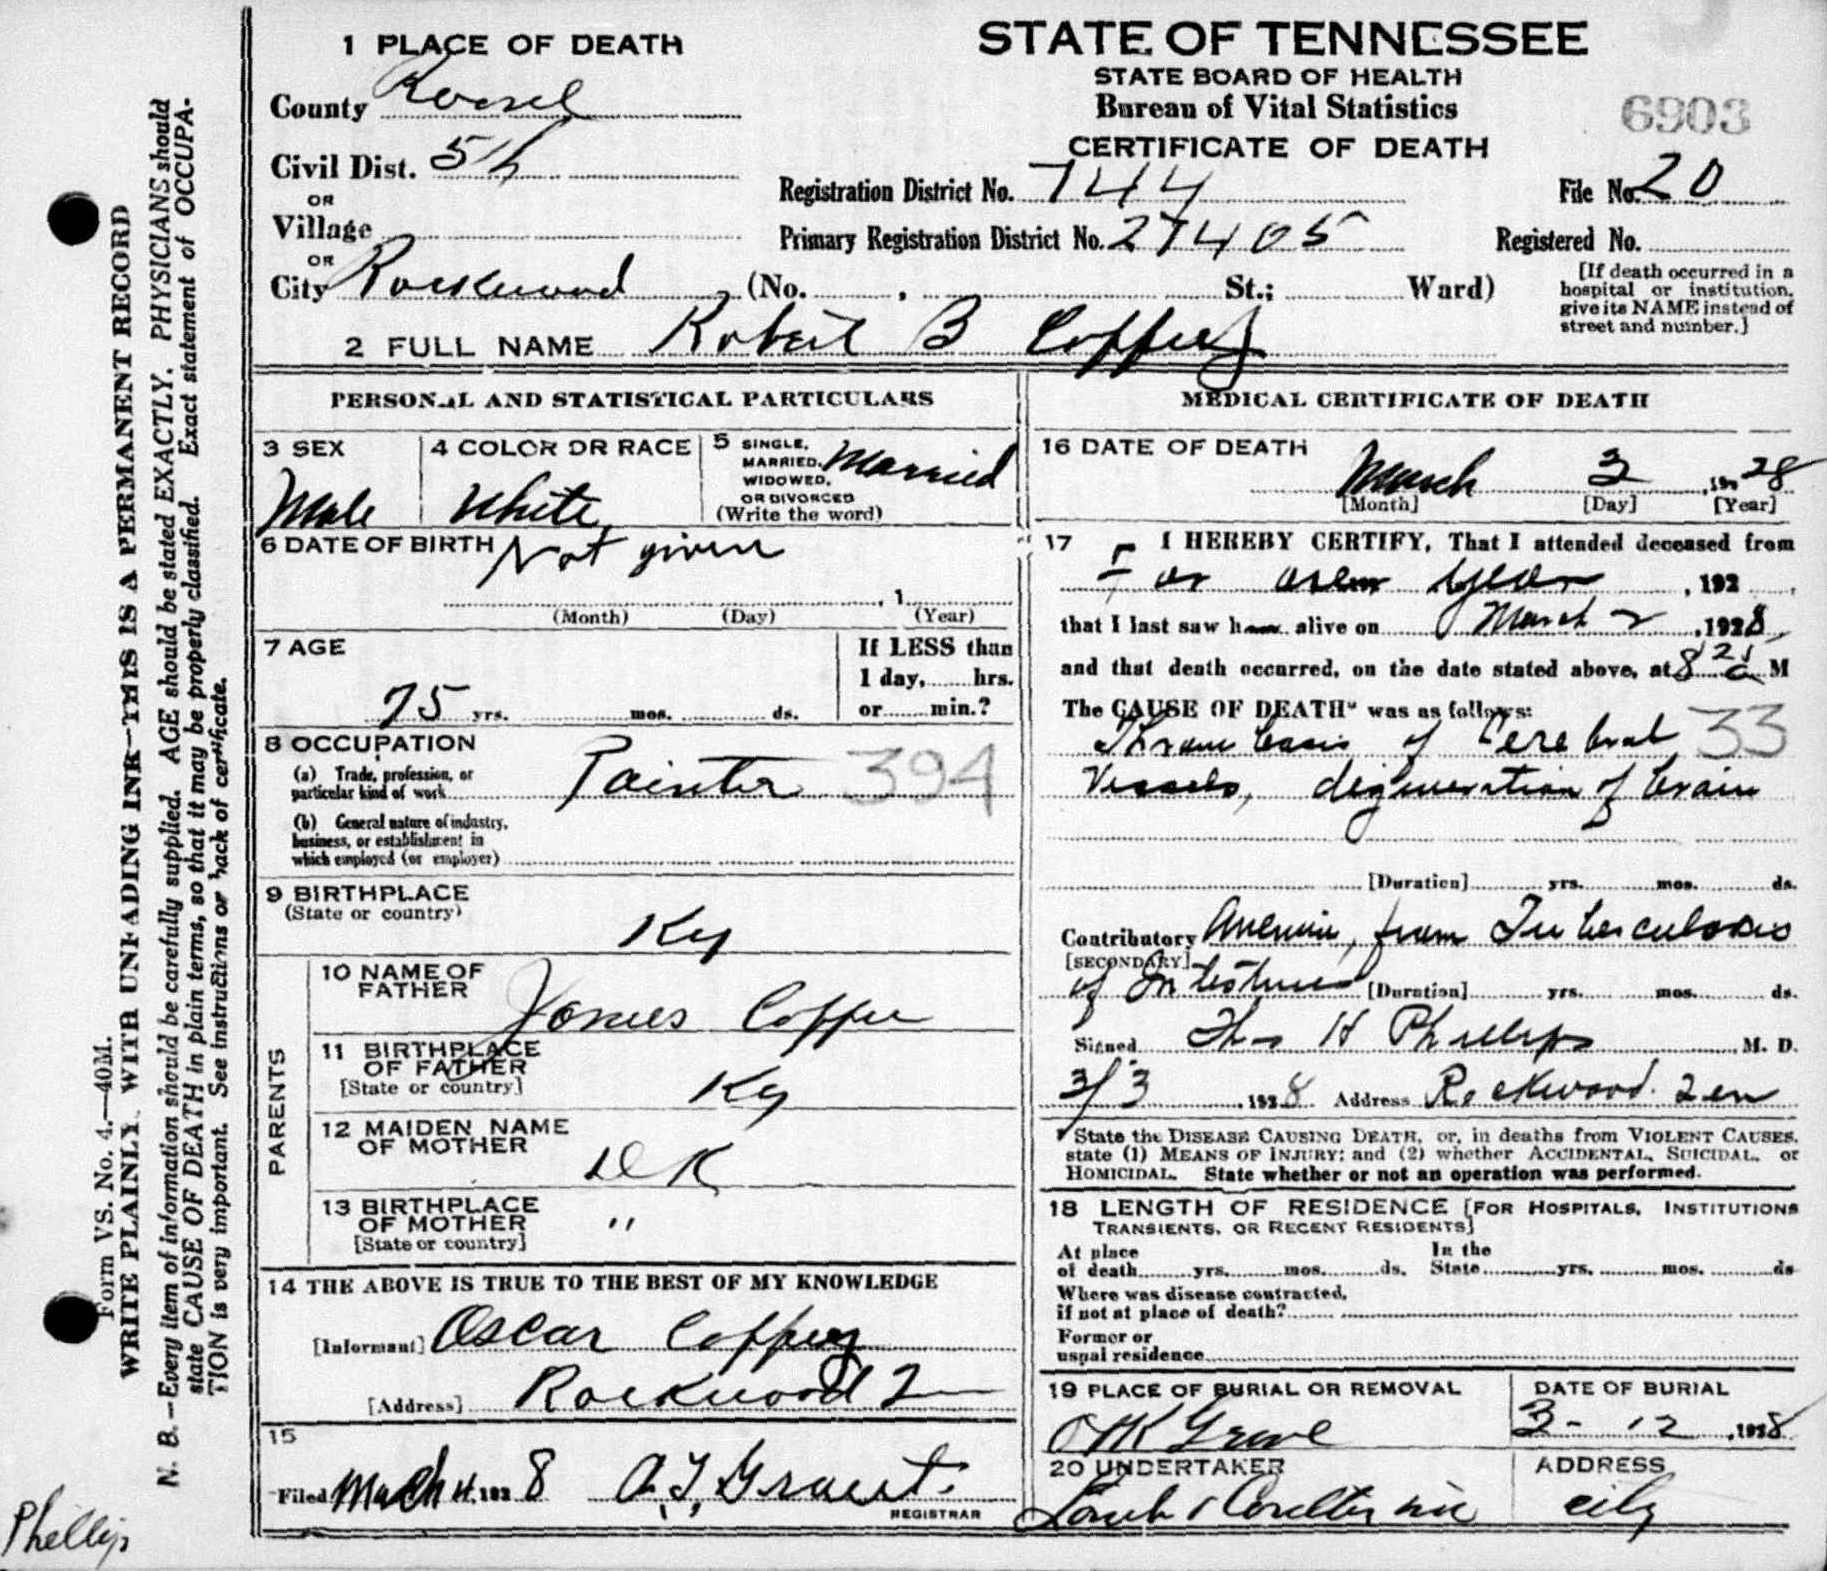 1 PLACE OF DEATH
County
Civil Dist. 5th
OR
Village
OR
City Rockwood (No. , St.; Ward)
STATE OF TENNESSEE
STATE BOARD OF HEALTH
Bureau of Vital Statistics
CERTIFICATE OF DEATH
6903
Registration District No. 744
File No. 20
Primary Registration District No. 27405
Registered No.
[If death occurred in a
hospital or institution,
give its NAME instead of
street and number.]
2 FULL NAME Robert B Coffey
PERSONAL AND STATISTICAL PARTICULARS
3 SEX
Male
4 COLOR OR RACE
White
5 SINGLE,
MARRIED,
WIDOWED,
OR DIVORCED
(Write the word)
Married
6 DATE OF BIRTH Not given
, 1
(Month) (Day) (Year)
7 AGE
75 yrs. mos. ds.
If LESS than
1 day, hrs.
or min.?
8 OCCUPATION
(a) Trade, profession, or
particular kind of work Painter 394
(b) General nature of industry,
business, or establishment in
which employed (or employer)
9 BIRTHPLACE
(State or country)
Ky
PARENTS
10 NAME OF
FATHER
James Coffee
11 BIRTHPLACE
OF FATHER
[State or country]
Ky
12 MAIDEN NAME
OF MOTHER
DK
13 BIRTHPLACE
OF MOTHER
[State or country]
"
14 THE ABOVE IS TRUE TO THE BEST OF MY KNOWLEDGE
[Informant] Oscar Coffey
[Address] Rockwood
15
Filed March 4, 1928 A.T. Grant.
REGISTRAR
MEDICAL CERTIFICATE OF DEATH
16 DATE OF DEATH
March 3, 1928
[Month] [Day] [Year]
17 I HEREBY CERTIFY, That I attended deceased from
year , 192 ,
that I last saw h alive on March 2, 1928,
and that death occurred, on the date stated above, at 8 25 a M
The CAUSE OF DEATH* was as follows:
Thrombosis of Cerebral 33
Vessels, degeneration of brain
[Duration] yrs. mos. ds.
Contributory Anemia, from Tuberculosis
[SECONDARY]
of Intestines [Duration] yrs. mos. ds.
Signed Thos H Phillips M. D.
3/3 1928 Address Rockwood. Ten
* State the DISEASE CAUSING DEATH, or, in deaths from VIOLENT CAUSES,
state (1) MEANS OF INJURY; and (2) whether ACCIDENTAL, SUICIDAL, or
HOMICIDAL. State whether or not an operation was performed.
18 LENGTH OF RESIDENCE [FOR HOSPITALS, INSTITUTIONS
TRANSIENTS, OR RECENT RESIDENTS]
At place
of death yrs. mos. ds.
In the
State yrs. mos. ds
Where was disease contracted,
if not at place of death?
Former or
usual residence
19 PLACE OF BURIAL OR REMOVAL
Grove
DATE OF BURIAL
3- 12, 1928
20 UNDERTAKER
ADDRESS
city
Form VS. No. 4.—40M.
WRITE PLAINLY, WITH UNFADING INK—THIS IS A PERMANENT RECORD
N. B.—Every item of information should be carefully supplied. AGE should be stated EXACTLY. PHYSICIANS should
state CAUSE OF DEATH in plain terms, so that it may be properly classified. Exact statement of OCCUPA-
TION is very important. See instructions on back of certificate.
Phillips